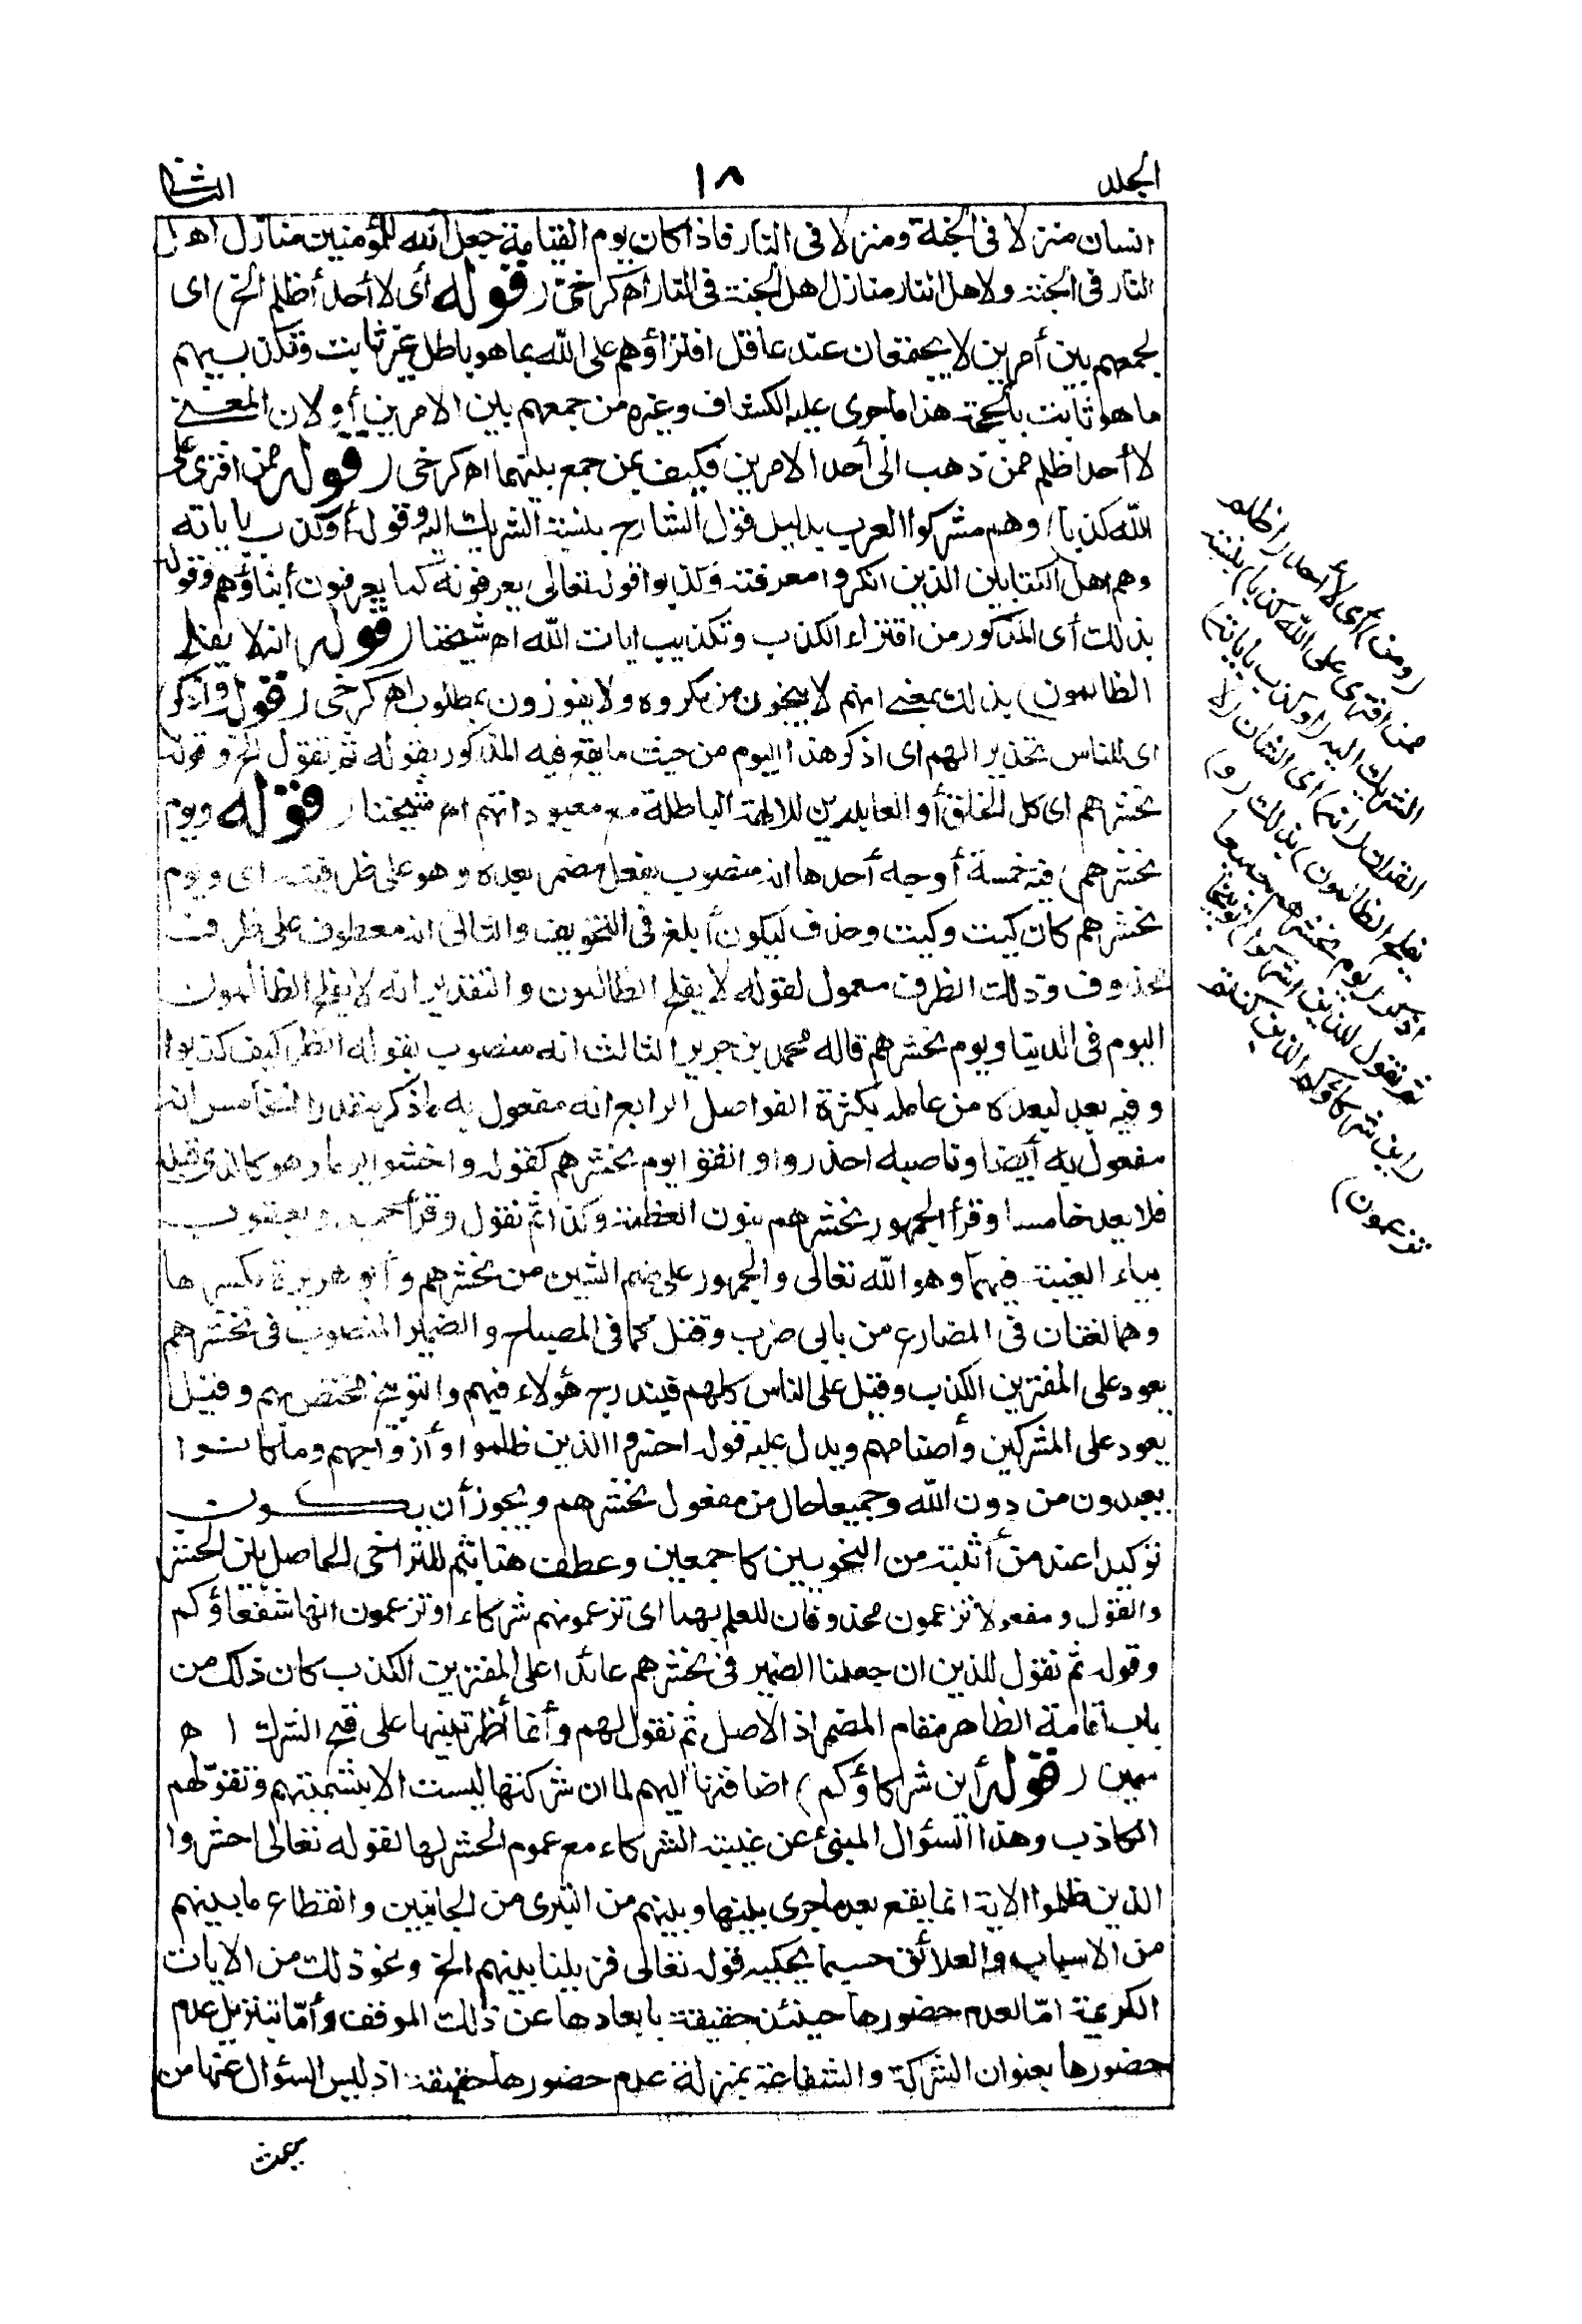 الجلد
١٨
الثانى
انسان منزلا فى الجنة ومنزلا فى النار فاذا كان يوم القيامة جعل الله للمؤمنين منازل اهل
النار فى الجنة ولاهل النار منازل اهل الجنة فى النار اه كرخى (قوله أى لا أحد أظلم الخ) اى
لجمعهم بين أمرين لا يجتمعان عند عاقل افتراؤهم على الله بما هو باطل غير ثابت وتكذيبهم
ما هو ثابت بالحجة هذا ما جرى عليه الكشاف وغيره من جمعهم بين الامرين أولان المعنى
لا أحد اظلم ممن ذهب الى أحد الامرين فكيف بمن جمع بينهما اه كرخى (قوله ممن افترى على
الله كذبا) وهم مشركوا العرب بدليل قول الشارح بنسبة الشريك اليه وقوله أو كذب باياته
وهم اهل الكتابين الذين انكروا معرفته وكذبوا قوله تعالى يعرفونه كما يعرفون أبناؤهم وقوله
بذلك أى المذكور من افتراء الكذب وتكذيب ايات الله اه شيخنا (قوله انه لا يفلح
الظالمون) بذلك بمعنى انهم لا ينجون من مكروه ولا يفوزون بمطلوب اه كرخى (قوله واذكر)
اى للناس تحذيرا لهم اى اذكر هذا اليوم من حيث ما يقع فيه المذكور بقوله ثم نقول الخ وقوله
نحشرهم اى كل الخلق أو العابدين للالهة الباطلة مع معبوداتهم اه شيخنا (قوله ويوم
نحشرهم) فيه خمسة أوجه أحدها انه منصوب بفعل مضمر بعده وهو على ظرفيته اى ويوم
نحشرهم كان كيت وكيت وحذف ليكون أبلغ فى التخويف والثانى انه معطوف على ظرف
محذوف وذلك الظرف معمول لقوله لا يفلح الظالمون والتقدير انه لا يفلح الظالمون
اليوم فى الدنيا ويوم نحشرهم قاله محمد بن جرير الثالث انه منصوب بقوله انظر كيف كذبوا
وفيه بعد لبعده من عامله بكثرة الفواصل الرابع انه مفعول به باذكر مقدرا الخامس انه
مفعول به أيضا وناصبه احذروا واتقوا يوم نحشرهم كقوله واخشوا يوما وهو كالذى قبله
فلا يعد خامسا وقرأ الجمهور نحشرهم بنون العظمة وكذا ثم نقول وقرأ حميد ويعقوب
بياء الغيبة فيهما وهو الله تعالى والجمهور على ضم الشين من نحشرهم وأبو هريرة بكسرها
وهما لغتان فى المضارع من بابى ضرب وقتل كما فى المصباح والضمير المنصوب فى نحشرهم
يعود على المفترين الكذب وقيل على الناس كلهم فيندرج هؤلاء فيهم والتوبيخ مختص بهم وقيل
يعود على المشركين وأصنامهم ويدل عليه قوله احشروا الذين ظلموا وأزواجهم وما كانوا
يعبدون من دون الله وجميعا حال من مفعول نحشرهم ويجوز أن يكون
توكيدا عند من أثبته من النحويين كاجمعين وعطف هنا بثم للتراخى الحاصل بين الحشر
والقول ومفعولا تزعمون محذوفان للعلم بهما اى تزعمونهم شركاء او تزعمون انها شفعاؤكم
وقوله ثم نقول للذين ان جعلنا الضمير فى نحشرهم عائدا على المفترين الكذب كان ذلك من
باب اقامة الظاهر مقام المضمر اذ الاصل ثم نقول لهم وأنما أظهر تنبيها على قبح الشرك اه
سمين (قوله أين شركاؤكم) اضافتها اليهم لما ان شركتها ليست الا بتسميتهم وتقولهم
الكاذب وهذا السؤال المبنى عن غيبة الشركاء مع عموم الحشر لها لقوله تعالى احشروا
الذين ظلموا الاية انما يقع بعد ما جرى بينها وبينهم من التبرى من الجانبين وانقطاع ما بينهم
من الاسباب والعلائق حسبما يحكيه قوله تعالى فزيلنا بينهم الخ ونحو ذلك من الايات
الكريمة امّا لعدم حضورها حينئذ حقيقة بابعادها عن ذلك الموقف وأمّا بتنزيل عدم
حضورها بعنوان الشركة والشفاعة بمنزلة عدم حضورها حقيقة اذ ليس السؤال عنها من
حيث
(ومن) أى لا أحد (اظلم
ممن افترى على الله كذبا) بنسبة
الشريك اليه (او كذب باياته)
القران (انه) اى الشان (لا
يفلح الظالمون) بذلك (و)
اذكر (يوم نحشرهم جميعا
ثم نقول للذين اشركوا) توبيخا
(اين شركاؤكم الذين كنتم
تزعمون)